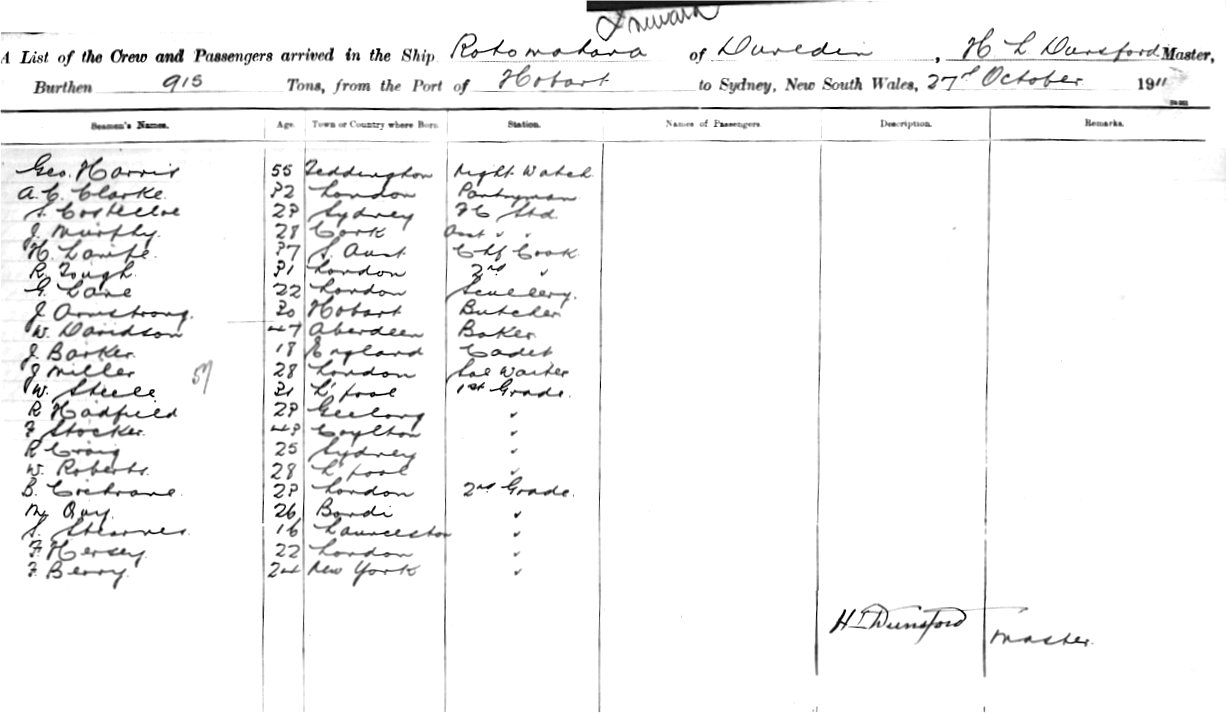 Inward
A List of the Crew and Passengers arrived in the Ship Rotomahana of Dunedin, H L Dunsford Master,
Burthen 915 Tons, from the Port of Hobart to Sydney, New South Wales, 27th October 1911
Seamen's Names. Age. Town or Country where Born Station. Names of Passengers. Description. Remarks.
Geo. Harris 55 Teddington Night Watch
A. C. Clarke 32 London Pantryman
S. Costelloe 29 Sydney FC Std
J. Murphy 28 Cork Asst " "
H. Lampe 37 S. Aust Chf Cook
R. Tough 31 London 2nd "
G. Lane 22 London Scullery.
J Armstrong 20 Hobart Butcher
W. Davidson 47 Aberdeen Baker
J Barker 18 England Cadet
J Miller 28 London Sal Waiter
W. Steele 31 L'pool 1st Grade.
R Hadfield 29 Geelong "
F Stocker 49 Coylton "
R Craig 25 Sydney "
W. Roberts 28 L'pool "
B. Cochrane 29 London 2nd Grade.
M Quy 26 Bondi "
S. Stearnes 16 Launceston "
F Hersey 22 London "
F Berry 24 New York "
H L Dunsford Master.